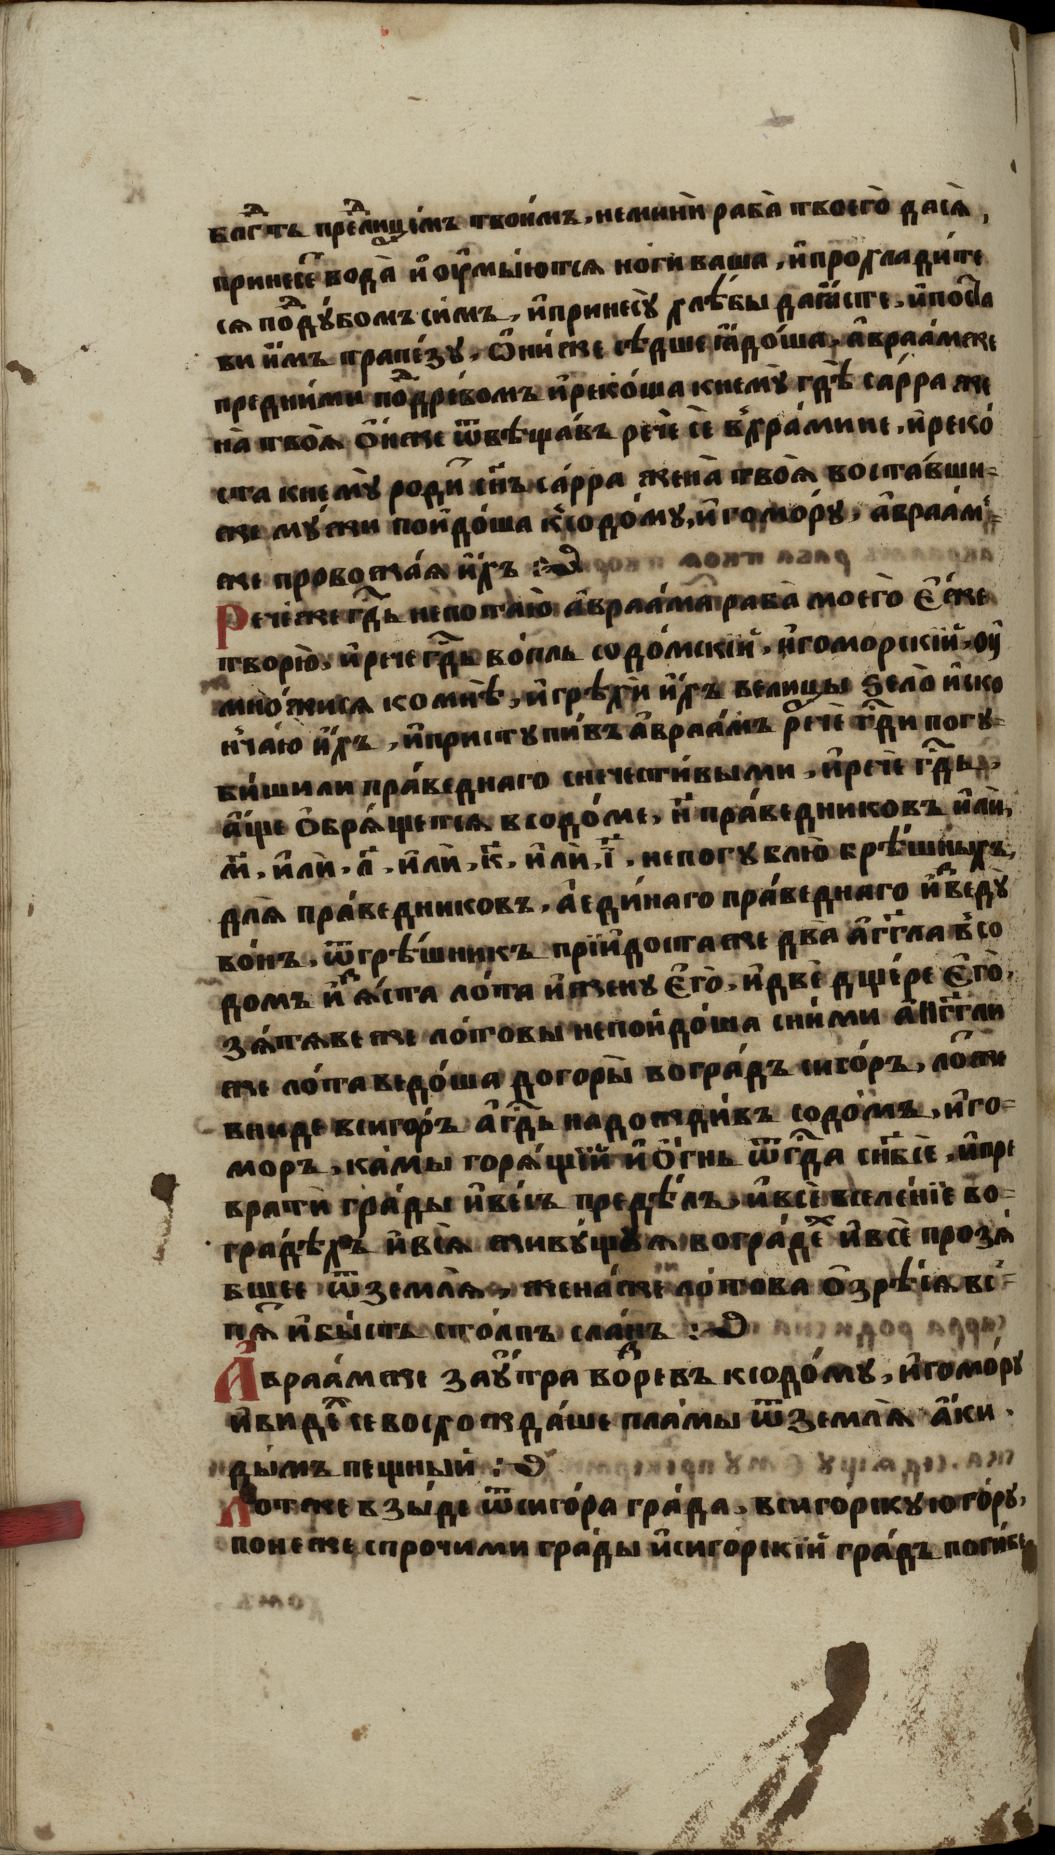 блгⷣть преⷣлицемъ твоимъ, немини раба твоего дася,
принесеⷮ вода и оумыются ноги ваша, и прохладите
ся поⷣдубомъ симъ, и принесу хлѣбы да ꙗсте, и поста
ви имъ трапезу, ѻни же сѣдше ꙗдоша, авраамже
пред ними поⷣдревомъ и рекоша к нему гдѣ сарра же
на твоя ѻн же ѿвѣщавъ рече се в храмине, и реко
ста к нему родиⷮ сн҃ъ сарра жена твоя воставши=
же мужи поидоша к содому, и гомору, авраам=
же провожая ихъ :
Рече же гдⷭ҇ь не потаю авраама раба моего еже
творю, и рече гдⷭ҇ь вопль содомскій, и гоморскій, оу
множися ко мнѣ, и грѣхи ихъ велицы ѕело и ско
нчаю ихъ, и приступивъ авраамъ рече гдⷭ҇и погу=
биши ли праведнаго с нечестивыми, и рече гдⷭ҇ь,
аще ѻбрящется в содоме, н҃ праведниковъ или,
м҃, или, л҃, или, к҃, или, і҃, не погублю грѣшныхъ,
для праведниковъ, а единаго праведнаго иⷥведу
вонъ, ѿ грѣшникъ пріидоста же два агг҃ла в со
домъ иⷥяста лота и жену его, и две дщере его,
зятяве же лотовы не поидоша с ними анг҃гли
же лота ведоша до горы во градъ сигоръ, лоⷮ же
вниде в сигоръ а гдⷭ҇ь надождивъ содомъ, и го=
моръ, камы горящій и ѻгнь ѿ гдⷭ҇а с нб҃се, и пре
врати грады и весь пределъ, и все вселеніе во=
градѣхъ и вся живущыя во градеⷯ и все прозя
бшее ѿ земля, жена же лотова ѻзрѣся вс=
пяⷮ и бысть столпъ сланъ :
Авраам же заутра воⷥревъ к содому, и гомору
и виде се восхождаше пламы ѿ земля аки,
дымъ пещный :
Лот же взыде ѿ сигора града, в сигорскую гору,
понеже с прочими грады и сигорскій градъ погибе